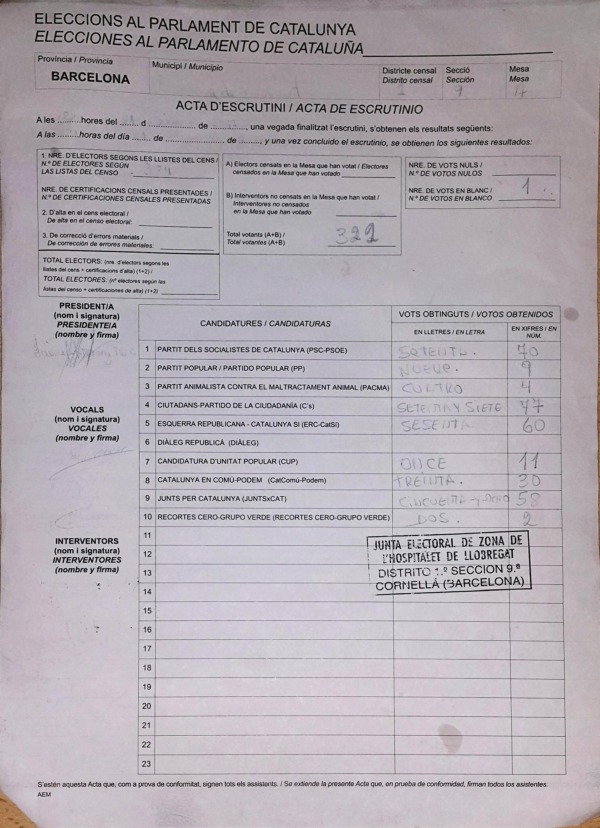 ELECCIONS AL PARLAMENT DE CATALUNYA
ELECCIONES AL PARLAMENTO DE CATALUÑA
Província / Provincia
BARCELONA
Municipi / Municipio
Districte censal
Distrito censal
Secció
Sección
Mesa
Mesa
ACTA D'ESCRUTINI / ACTA DE ESCRUTINIO
A les ......... hores del ..... d ................ de ........, una vegada finalitzat l'escrutini, s'obtenen els resultats següents:
A las ......... horas del día ..... de ................ de ........, y una vez concluido el escrutinio, se obtienen los siguientes resultados:
1. NRE. D'ELECTORS SEGONS LES LLISTES DEL CENS /
N.º DE ELECTORES SEGÚN
LAS LISTAS DEL CENSO
NRE. DE CERTIFICACIONS CENSALS PRESENTADES /
N.º DE CERTIFICACIONES CENSALES PRESENTADAS
2. D'alta en el cens electoral /
De alta en el censo electoral:
3. De correcció d'errors materials /
De corrección de errores materiales:
TOTAL ELECTORS: (nre. d'electors segons les
llistes del cens + certificacions d'alta) (1+2) /
TOTAL ELECTORES: (nº electores según las
listas del censo + certificaciones de alta) (1+2)
A) Electors censats en la Mesa que han votat / Electores
censados en la Mesa que han votado
B) Interventors no censats en la Mesa que han votat /
Interventores no censados
en la Mesa que han votado
Total votants (A+B) /
Total votantes (A+B)
322
NRE. DE VOTS NULS /
N.º DE VOTOS NULOS
NRE. DE VOTS EN BLANC /
N.º DE VOTOS EN BLANCO
1
PRESIDENT/A
(nom i signatura)
PRESIDENTE/A
(nombre y firma)
VOCALS
(nom i signatura)
VOCALES
(nombre y firma)
INTERVENTORS
(nom i signatura)
INTERVENTORES
(nombre y firma)
CANDIDATURES / CANDIDATURAS
VOTS OBTINGUTS / VOTOS OBTENIDOS
EN LLETRES / EN LETRA
EN XIFRES / EN NÚM.
1 PARTIT DELS SOCIALISTES DE CATALUNYA (PSC-PSOE) SETENTA. 70
2 PARTIT POPULAR / PARTIDO POPULAR (PP) NUEVE. 9
3 PARTIT ANIMALISTA CONTRA EL MALTRACTAMENT ANIMAL (PACMA) CUATRO 4
4 CIUTADANS-PARTIDO DE LA CIUDADANÍA (C's) SETENTA Y SIETE 77
5 ESQUERRA REPUBLICANA - CATALUNYA SI (ERC-CatSí) SESENTA. 60
6 DIÀLEG REPUBLICÀ (DIÀLEG)
7 CANDIDATURA D'UNITAT POPULAR (CUP) ONCE 11
8 CATALUNYA EN COMÚ-PODEM (CatComú-Podem) TREINTA. 30
9 JUNTS PER CATALUNYA (JUNTSxCAT) CINCUENTA Y OCHO 58
10 RECORTES CERO-GRUPO VERDE (RECORTES CERO-GRUPO VERDE) DOS. 2
11
12
13
14
15
16
17
18
19
20
21
22
23
JUNTA ELECTORAL DE ZONA DE
L'HOSPITALET DE LLOBREGAT
DISTRITO 1.º SECCION 9.ª
CORNELLÁ (BARCELONA)
S'estén aquesta Acta que, com a prova de conformitat, signen tots els assistents. / Se extiende la presente Acta que, en prueba de conformidad, firman todos los asistentes.
AEM